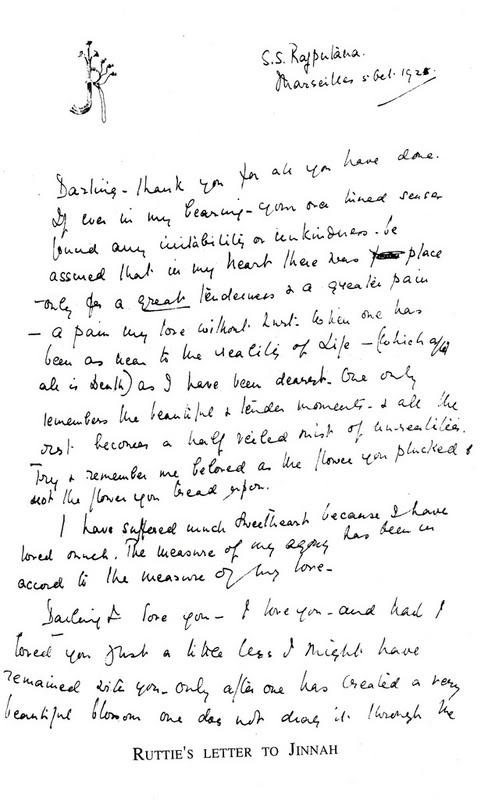 S.S. Rajputana.
Marseilles 5 Oct. 1928.
Darling – thank you for all you have done.
If ever in my bearing – your once tuned senses
found any irritability or unkindness – be
assured that in my heart there was place
only for a great tenderness & a greater pain
– a pain my love without hurt. When one has
been as near to the reality of Life – (which after
all is Death) as I have been dearest – One only
remembers the beautiful & tender moments – & all the
rest becomes a half veiled mist of unrealities.
Try & remember me beloved as the flower you plucked &
not the flower you tread upon.
I have suffered much Sweetheart because I have
loved much. The measure of my agony has been in
accord to the measure of my love –
Darling I love you – I love you – and had I
loved you just a little less I might have
remained with you – only after one has created a very
beautiful blossom one does not drag it through the
RUTTIE'S LETTER TO JINNAH